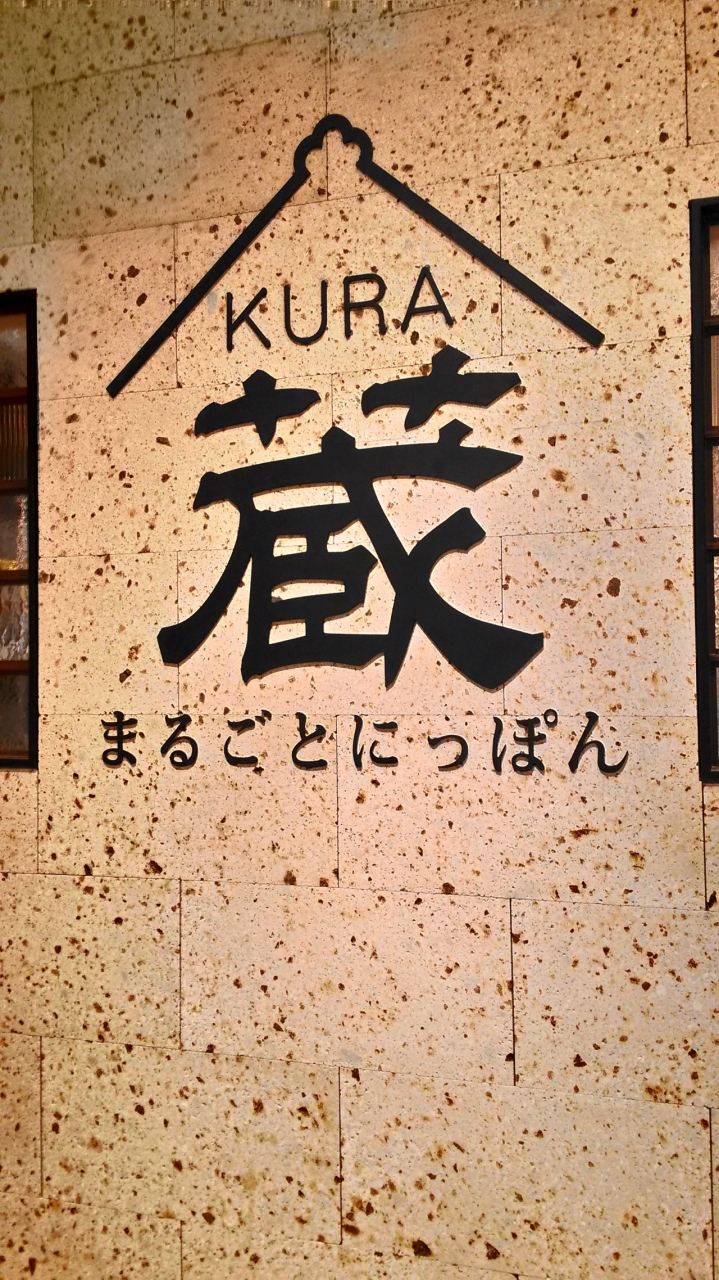 KURA
蔵
まるごとにっぽん